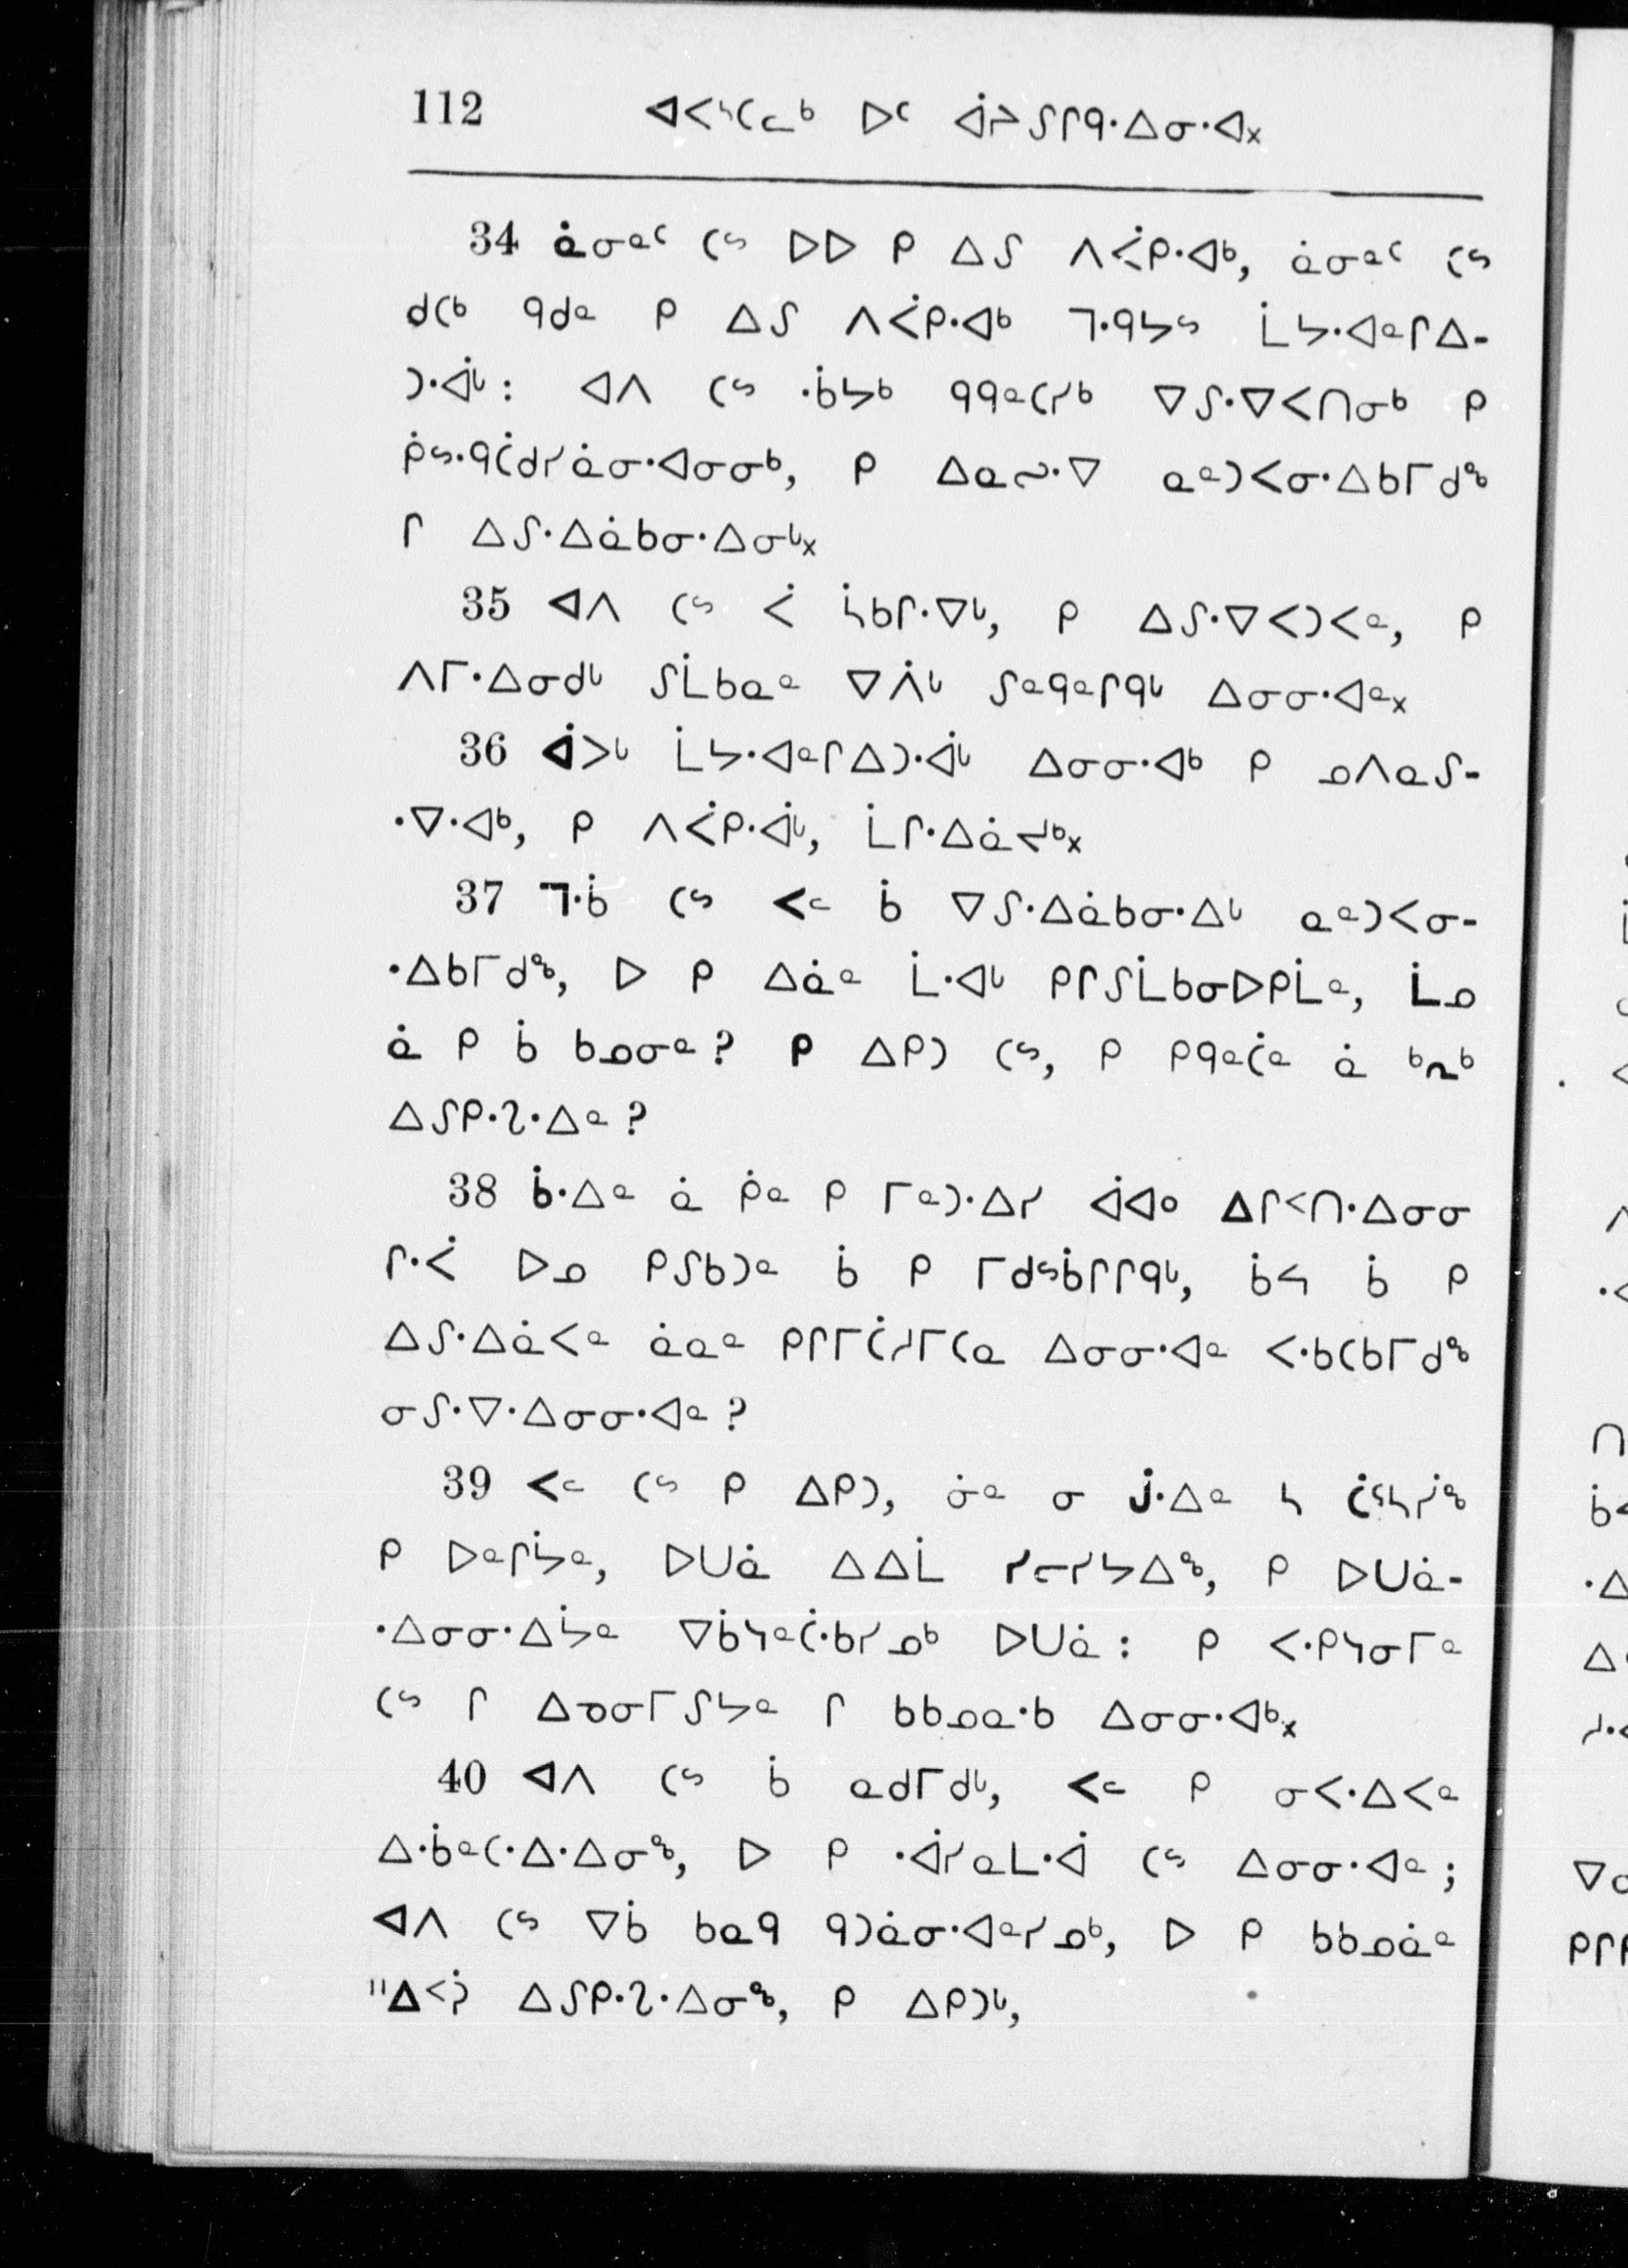 112 ᐊᐸᔅᑕᓚᒃ ᐅᑦ ᐋᔨᔑᒋᑫᐧᐃᓂᐧᐊ᙮
34 ᓈᓂᓐᑦ ᑕᔥ ᐅᐅ ᑭ ᐃᔑ ᐱᐹᑭᐧᐊᒃ, ᓈᓂᓐᑦ ᑕᔥ
ᑯᑕᒃ ᑫᑯᓐ ᑭ ᐃᔑ ᐱᐹᑭᐧᐊᒃ ᒣᐧᑫᔭᔥ ᒫᔭᐧᐊᓐᒋᐃ-
ᑐᐧᐋᒡ: ᐊᐱ ᑕᔥ ᐧᑳᔭᒃ ᑫᑫᓐᑕᓯᒃ ᐁᔑᐧᐁᐸᑎᓂᒃ ᑭ
ᑮᔥᐧᑫᑖᑯᓯᓈᓂᐧᐊᓂᓂᒃ, ᑭ ᐃᓇᓱᐧᐁ ᓇᓐᑐᐸᓂᐧᐃᑲᒥᑯᓐᒃ
ᒋ ᐃᔑᐧᐃᓈᑲᓂᐧᐃᓂᒡ᙮
35 ᐊᐱ ᑕᔥ ᐹ ᓵᑲᒋᐧᐁᒡ, ᑭ ᐃᔑᐧᐁᐸᑐᐸᓐ, ᑭ
ᐱᒥᐧᐃᓂᑯᒡ ᔑᒫᑲᓇᓐ ᐁᐲᒡ ᔑᓐᑫᓐᒋᑫᒡ ᐃᓂᓂᐧᐊᓐ᙮
36 ᐋᐳᒡ ᒫᔭᐧᐊᓐᒋᐃᑐᐧᐋᒡ ᐃᓂᓂᐧᐊᒃ ᑭ ᓄᐱᓇᔑ-
ᐧᐁᐧᐊᒃ, ᑭ ᐱᐹᑭᐧᐋᒡ, ᒫᒋᐧᐃᓈᔪᒃ᙮
37 ᒣᐧᑳ ᑕᔥ ᐸᓪ ᑳ ᐁᔑᐧᐃᓈᑲᓂᐧᐃᒡ ᓇᓐᑐᐸᓂ-
ᐧᐃᑲᒥᑯᓐᒃ, ᐅ ᑭ ᐃᓈᓐ ᒫᐧᐊᒡ ᑭᒋᔑᒫᑲᓂᐅᑭᒫᓐ, ᒫᓄ
ᓈ ᑭ ᑳ ᑲᓄᓂᓐ? ᑭ ᐃᑭᑐ ᑕᔥ, ᑭ ᑭᑫᓐᑖᓐ ᓈ ᒃᕒᒃ
ᐃᔑᑭᐧᔐᐧᐃᓐ?
38 ᑳᐧᐃᓐ ᓈ ᑮᓐ ᑭ ᒥᓐᑐᐧᐃᓯ ᐋᐊᐤ ᐃᒋᑉᑎᐧᐃᓂᓂ
ᒋᐧᐹ ᐅᓄ ᑭᔑᑲᑐᓐ ᑳ ᑭ ᒥᑯᔥᑳᒋᒋᑫᒡ, ᑳᔦ ᑳ ᑭ
ᐃᔑᐧᐃᓈᐸᓐ ᓈᓇᓐ ᑭᒋᒥᑖᓱᒥᑕᓇ ᐃᓂᓂᐧᐊᓐ ᐸᐧᑲᑕᑲᒥᑯᓐᒃ
ᓂᔑᐧᐁᐧᐃᓂᓂᐧᐊᓐ?
39 ᐸᓪ ᑕᔥ ᑭ ᐃᑭᑐ, ᓃᓐ ᓂ ᒎᐧᐃᓐ ᓴ ᑖᕐᓴᓰᓐᒃ
ᑭ ᐅᓐᒋᔮᓐ, ᐅᑌᓈ ᐃᐃᒫ ᓯᓕᓯᔭᐃᓐᒃ, ᑭ ᐅᑌᓈ-
ᐧᐃᓂᓂᐧᐃᔮᓐ ᐁᑳᓴᓐᑖᐧᑲᓯᓄᒃ ᐅᑌᓈ: ᑭ ᐸᐧᑭᓴᓂᒥᓐ
ᑕᔥ ᒋ ᐃᓀᓂᒥᔑᔭᓐ ᒋ ᑲᑲᓄᓇᐧᑲ ᐃᓂᓂᐧᐊᒃ᙮
40 ᐊᐱ ᑕᔥ ᑳ ᓇᑯᒥᑯᒡ, ᐸᓪ ᑭ ᓂᐸᐧᐃᐸᓐ
ᐃᐧᑳᓐᑕᐧᐃᐧᐃᓂᓐᒃ, ᐅ ᑭ ᐧᐋᓯᓇᒪᐧᐋ ᑕᔥ ᐃᓂᓂᐧᐊᓐ;
ᐊᐱ ᑕᔥ ᐁᑳ ᑲᓇᑫ ᑫᑐᓈᓂᐧᐊᓐᓯᓄᒃ, ᐅ ᑭ ᑲᑲᓄᓈᓐ
"ᐃᑉᕉ ᐃᔑᑭᐧᔐᐧᐃᓂᓐᒃ, ᑭ ᐃᑭᑐᒡ,